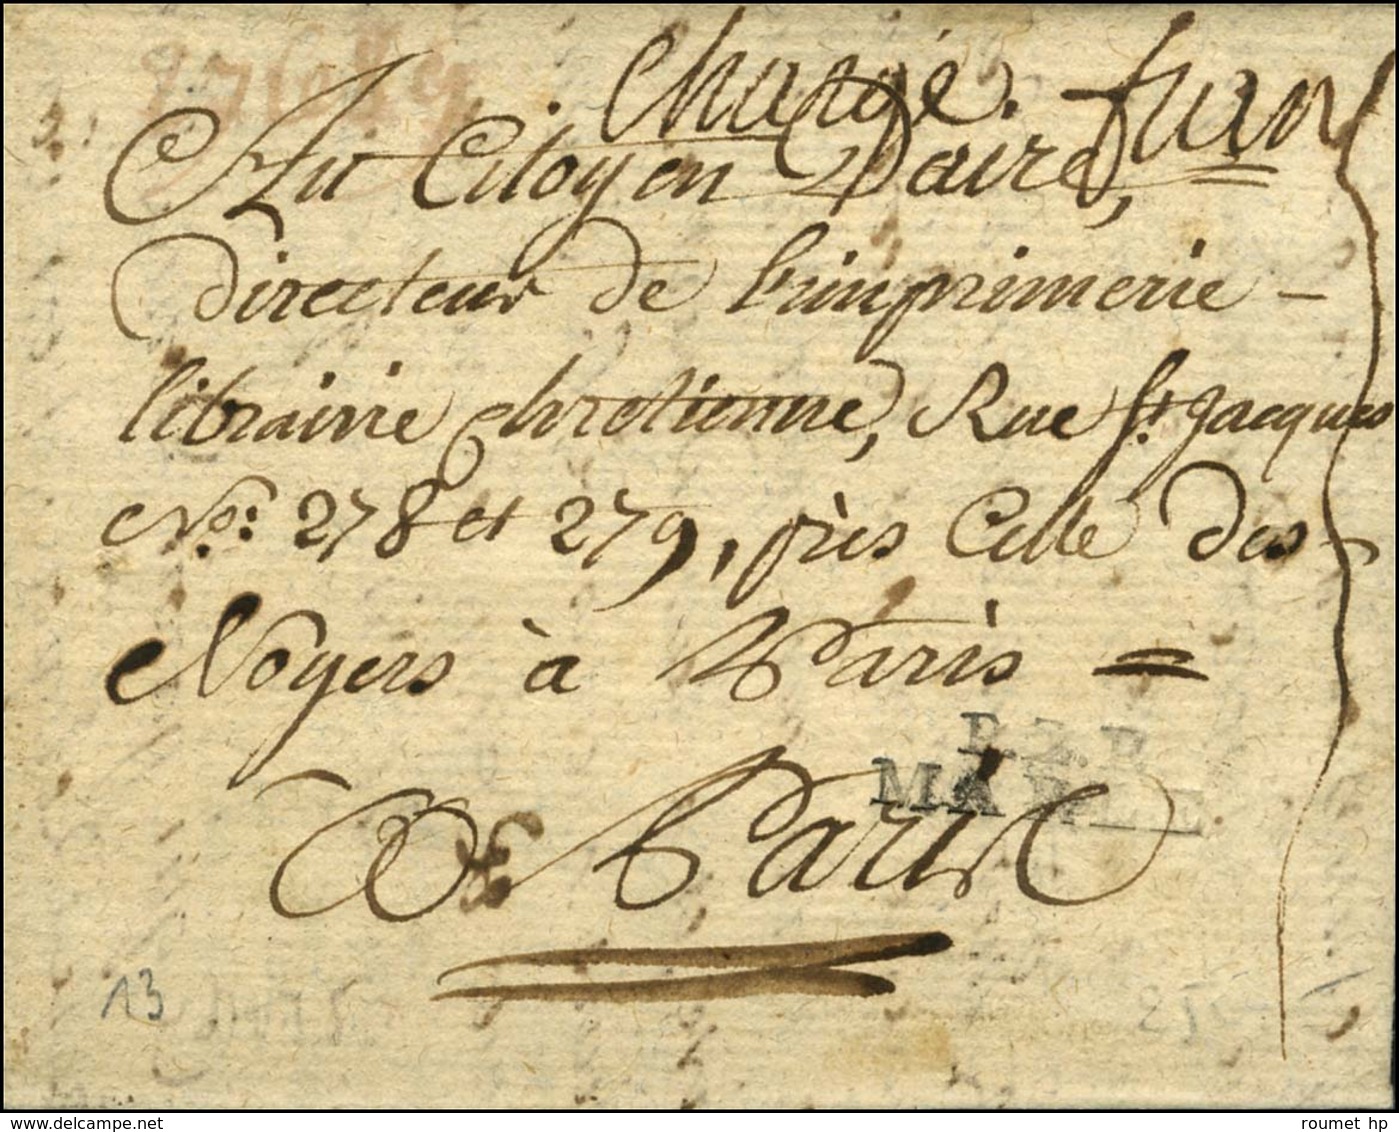 Chargé. fran
Au Citoyen Daire,
Directeur de l'imprimerie -
librairie chretienne, Rue St. Jacques
Nos. 278 et 279, près Celle des
Noyers à Paris =
P. 2. P.
MARLE
Paris
13
roumet hp